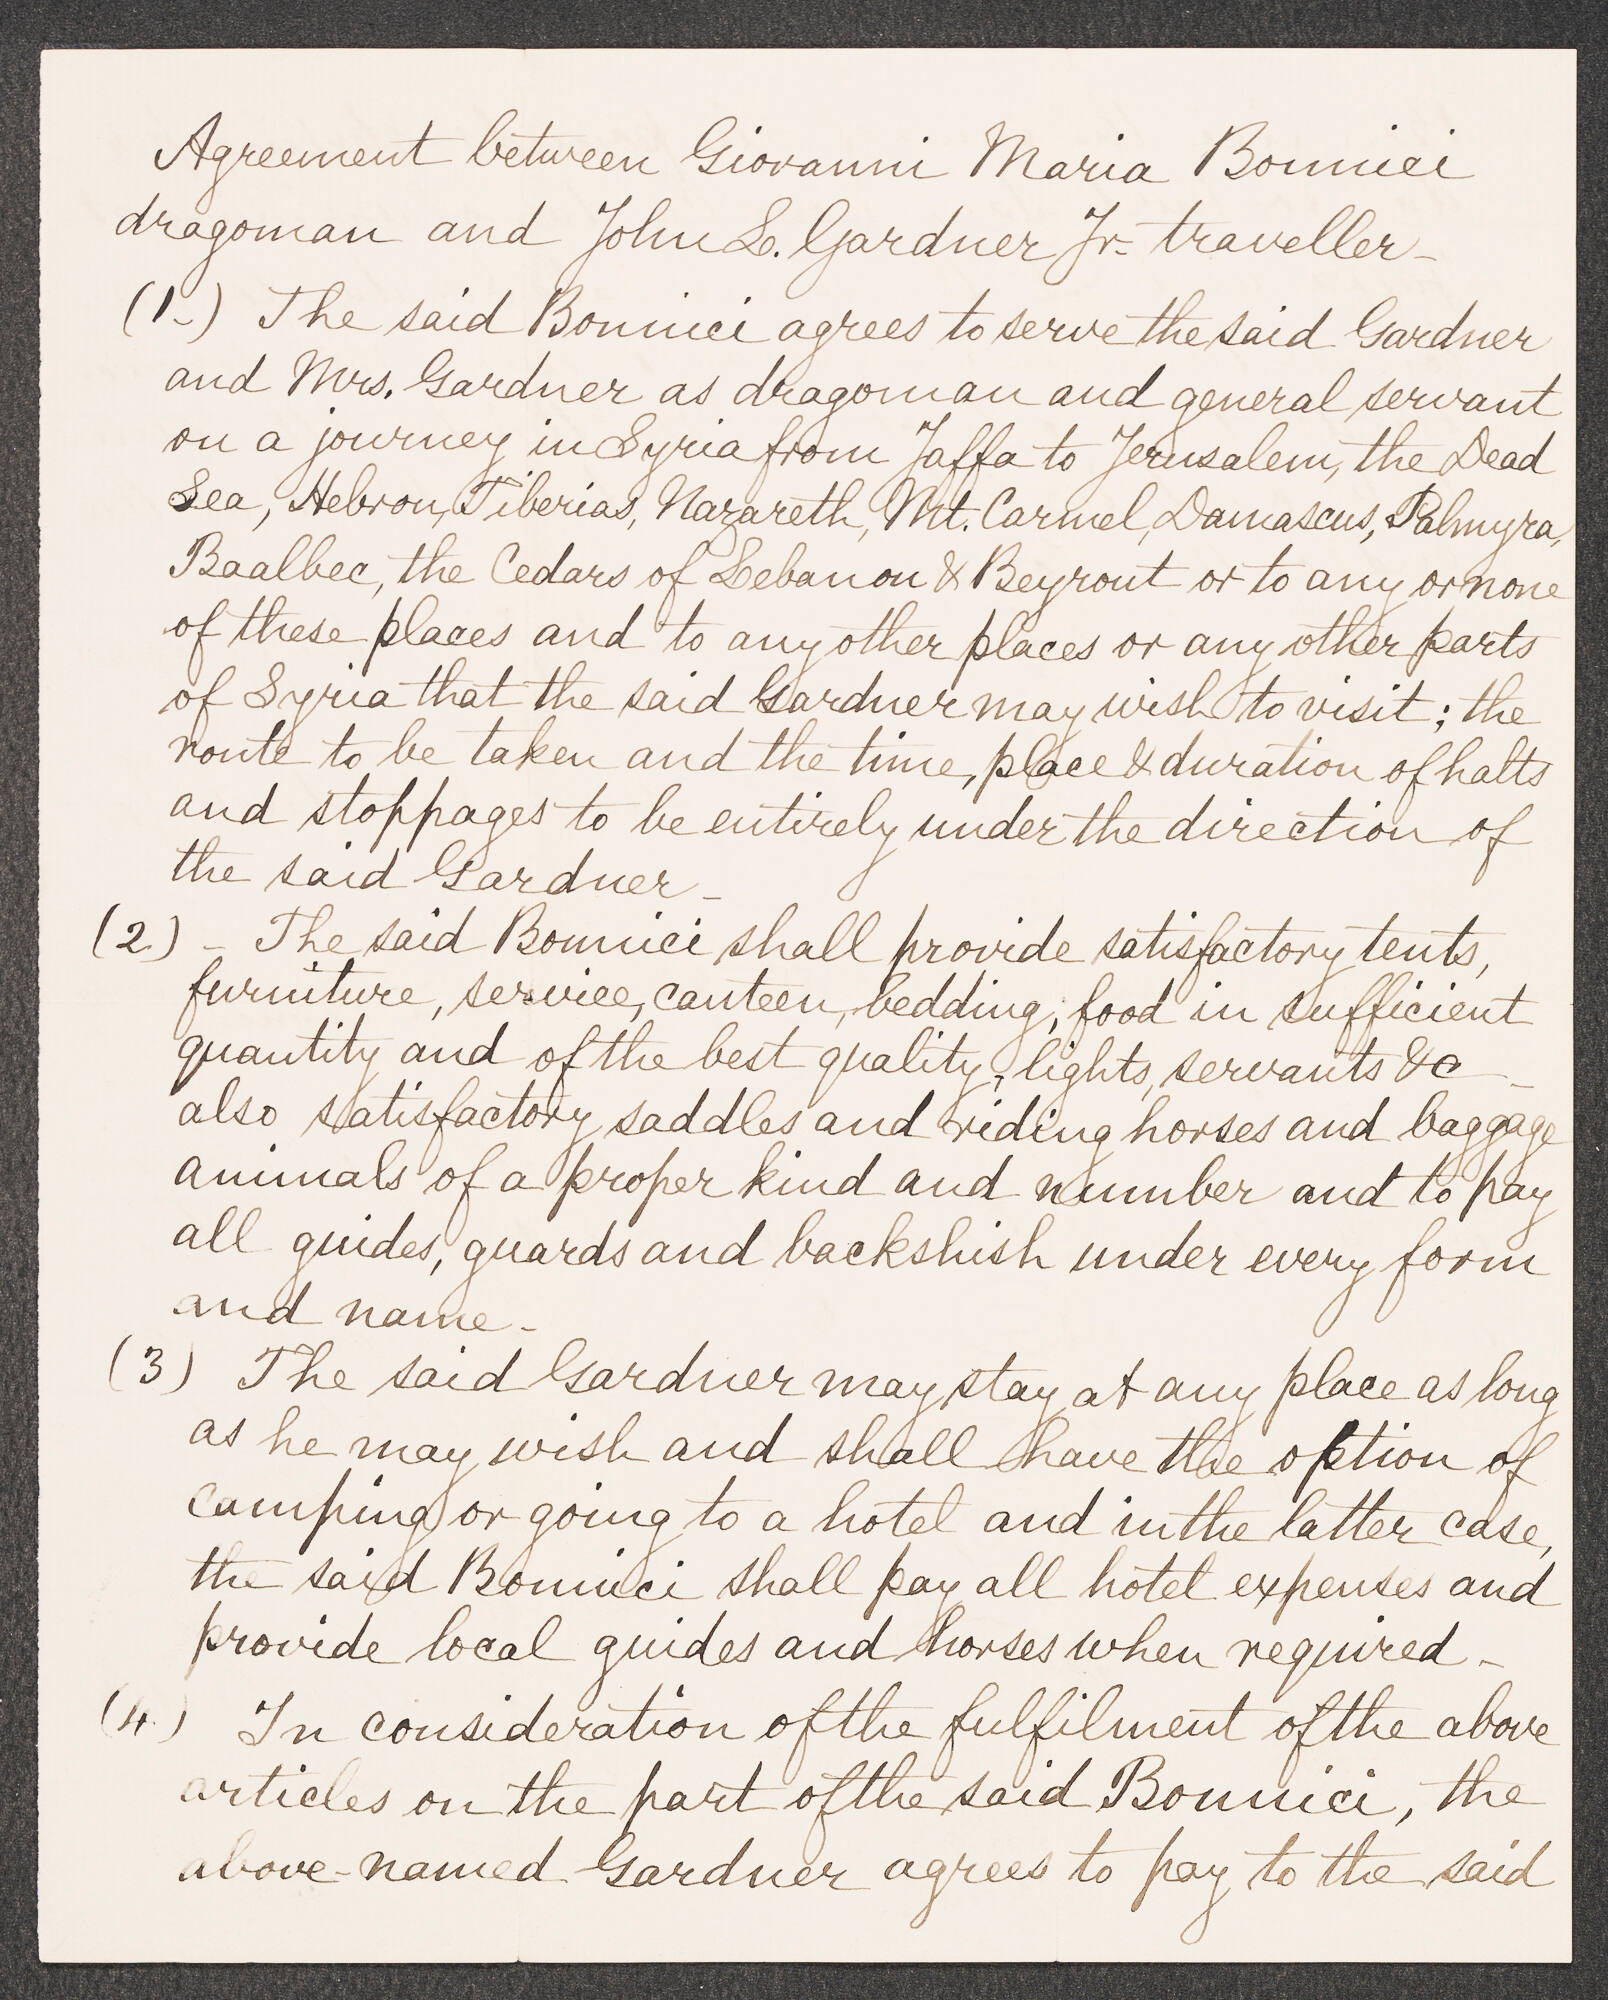 Agreement between Giovanni Maria Bonnici
dragoman and John L. Gardner Jr. traveller_
(1.) The said Bonnici agrees to serve the said Gardner
and Mrs. Gardner as dragoman and general servant
on a journey in Syria from Jaffa to Jerusalem, the Dead
Sea, Hebron, Tiberias, Nazareth, Mt. Carmel, Damascus, Palmyra,
Baalbec, the Cedars of Lebanon & Beyrout or to any or none
of these places and to any other places or any other parts
of Syria that the said Gardner may wish to visit; the
route to be taken and the time, place & duration of halts
and stoppages to be entirely under the direction of
the said Gardner_
(2.) _ The said Bonnici shall provide satisfactory tents,
furniture, service, canteen, bedding, food in sufficient
quantity and of the best quality, lights, servants &c _
also satisfactory saddles and riding horses and baggage
animals of a proper kind and number and to pay
all guides, guards and backshish under every form
and name_
(3) The said Gardner may stay at any place as long
as he may wish and shall have the option of
camping or going to a hotel and in the latter case,
the said Bonnici shall pay all hotel expenses and
provide local guides and horses when required_
(4.) In consideration of the fulfilment of the above
articles on the part of the said Bonnici, the
above-named Gardner agrees to pay to the said